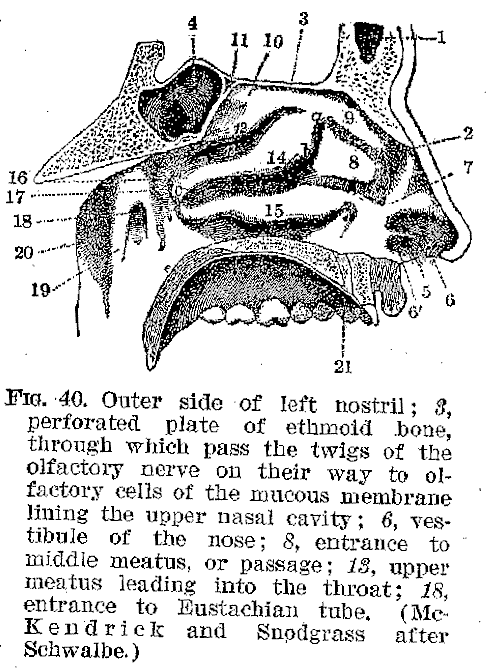 4
11
10
3
1
9
a
2
13
14
b
8
7
16
17
c
15
18
20
19
5
6
6'
21
FIG. 40. Outer side of left nostril; 3,
perforated plate of ethmoid bone,
through which pass the twigs of the
olfactory nerve on their way to ol-
factory cells of the mucous membrane
lining the upper nasal cavity; 6, ves-
tibule of the nose; 8, entrance to
middle meatus, or passage; 13, upper
meatus leading into the throat; 18,
entrance to Eustachian tube. (Mc-
Kendrick and Snodgrass after
Schwalbe.)